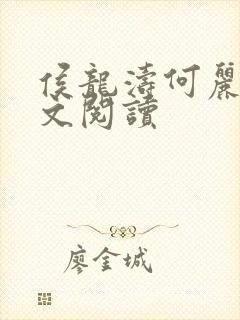 侯龍濤何麗
文閱讀
廖金城